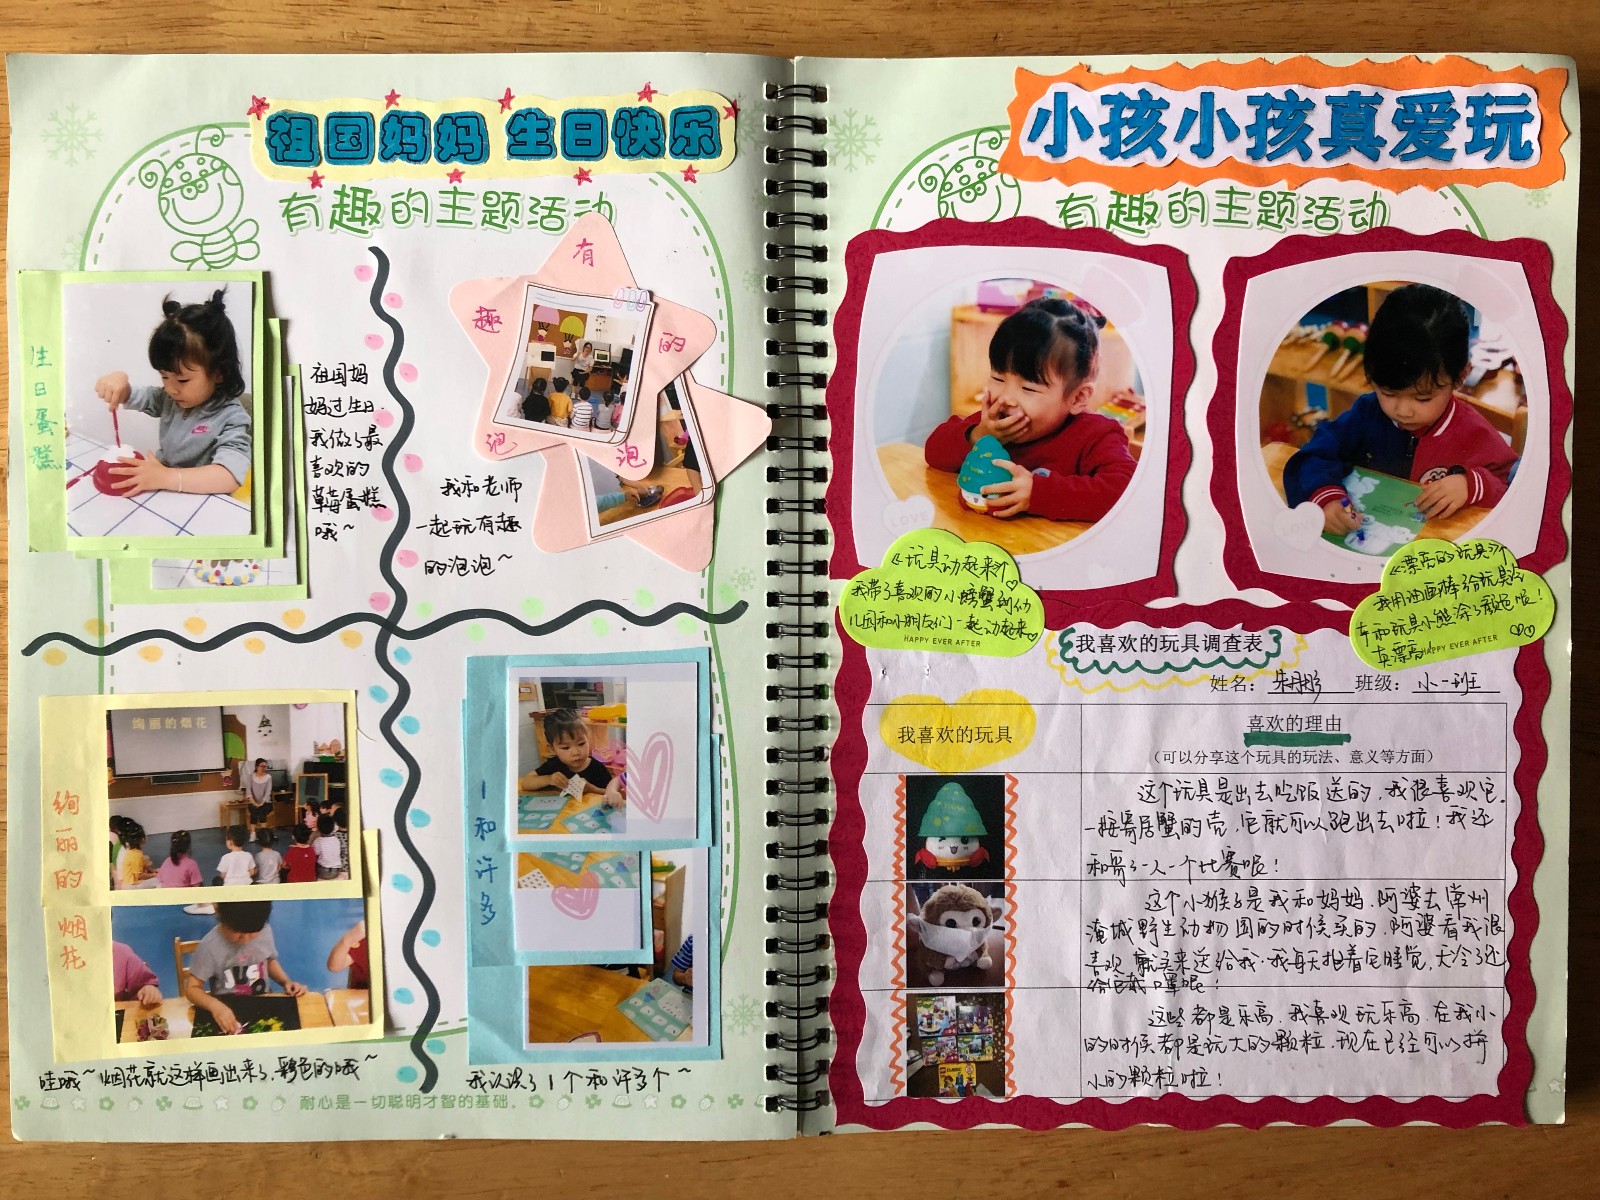 祖国妈妈 生日快乐
有趣的主题活动
生日蛋糕
祖国妈
妈过生日
我做了最
喜欢的
草莓蛋糕
哦~
有趣的泡泡
我和老师
一起玩有趣
的泡泡~
绚丽的烟花
绚丽的烟花
哇哦~ 烟花就这样画出来了,彩色的哦~
1和许多
我认识了1个和许多个~
耐心是一切聪明才智的基础。
小孩小孩真爱玩
有趣的主题活动
LOVE
LOVE
《玩具动起来》
我带了喜欢的小螃蟹到幼
儿园和小朋友们一起动起来
HAPPY EVER AFTER
《漂亮的玩具》
我用油画棒给玩具
车和玩具小熊涂了颜色呢!
真漂亮!
HAPPY EVER AFTER
我喜欢的玩具调查表
姓名: 班级:小一班
我喜欢的玩具
喜欢的理由
(可以分享这个玩具的玩法、意义等方面)
这个玩具是出去吃饭送的,我很喜欢它。
一按寄居蟹的壳,它就可以跑出去啦!我还
和哥哥一人一个比赛呢!
这个小猴子是我和妈妈、阿婆去常州
淹城野生动物园的时候买的,阿婆看我很
喜欢,就买来送给我。我每天抱着它睡觉,天冷了还
给它戴口罩呢!
这些都是乐高,我喜欢玩乐高,在我小
的时候都是玩大的颗粒,现在已经可以拼
小的颗粒啦!